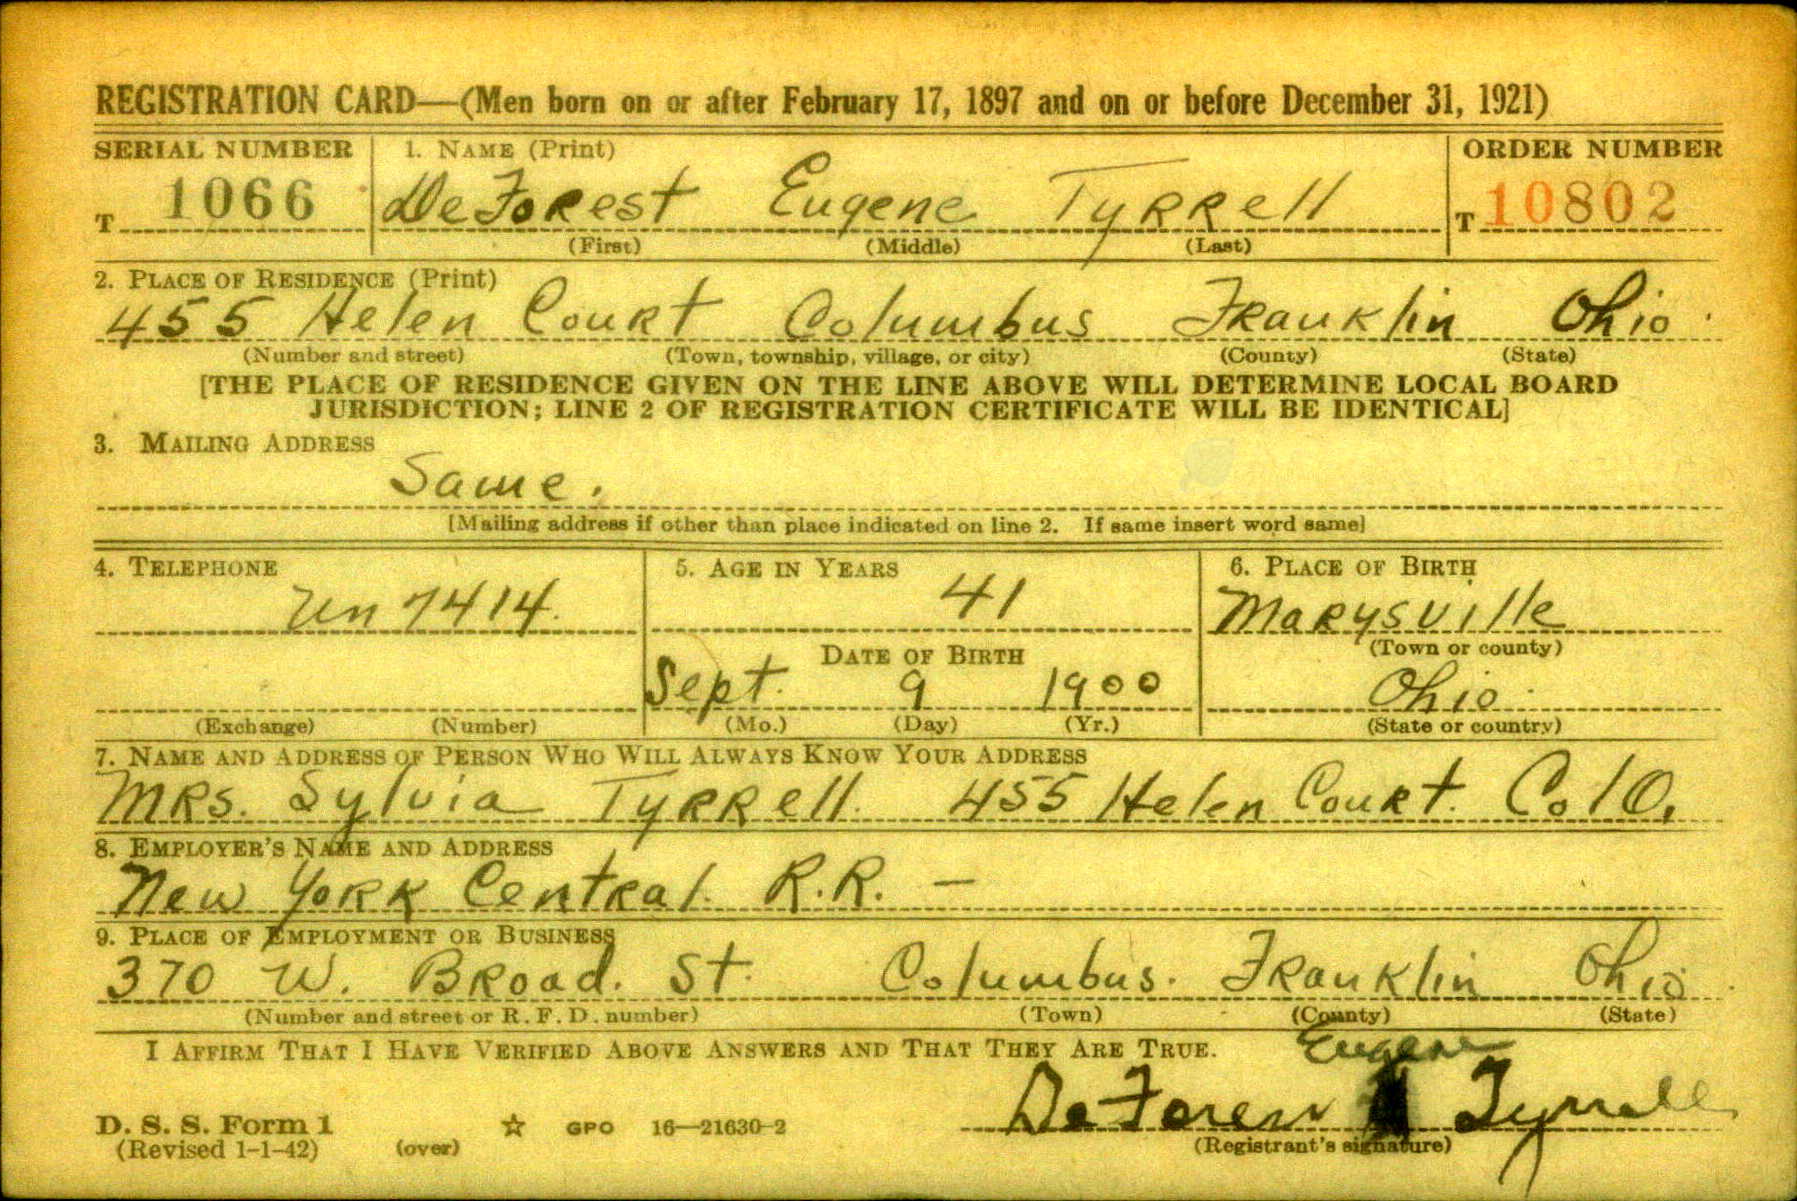 REGISTRATION CARD—(Men born on or after February 17, 1897 and on or before December 31, 1921)
SERIAL NUMBER 1. NAME (Print) ORDER NUMBER
T 1066 DeForest Eugene Tyrrell T 10802
(First) (Middle) (Last)
2. PLACE OF RESIDENCE (Print)
455 Helen Court Columbus Franklin Ohio
(Number and street) (Town, township, village, or city) (County) (State)
[THE PLACE OF RESIDENCE GIVEN ON THE LINE ABOVE WILL DETERMINE LOCAL BOARD
JURISDICTION; LINE 2 OF REGISTRATION CERTIFICATE WILL BE IDENTICAL]
3. MAILING ADDRESS
Same.
[Mailing address if other than place indicated on line 2. If same insert word same]
4. TELEPHONE 5. AGE IN YEARS 6. PLACE OF BIRTH
Un 7414. 41 Marysville
DATE OF BIRTH (Town or county)
Sept. 9 1900 Ohio
(Exchange) (Number) (Mo.) (Day) (Yr.) (State or country)
7. NAME AND ADDRESS OF PERSON WHO WILL ALWAYS KNOW YOUR ADDRESS
Mrs. Sylvia Tyrrell. 455 Helen Court. Col O.
8. EMPLOYER'S NAME AND ADDRESS
New York Central R.R. —
9. PLACE OF EMPLOYMENT OR BUSINESS
370 W. Broad. St. Columbus. Franklin Ohio
(Number and street or R. F. D. number) (Town) (County) (State)
I AFFIRM THAT I HAVE VERIFIED ABOVE ANSWERS AND THAT THEY ARE TRUE.
Eugene
DeForest Tyrrell
D. S. S. Form 1 ☆ GPO 16—21630-2
(Revised 1-1-42) (over) (Registrant's signature)